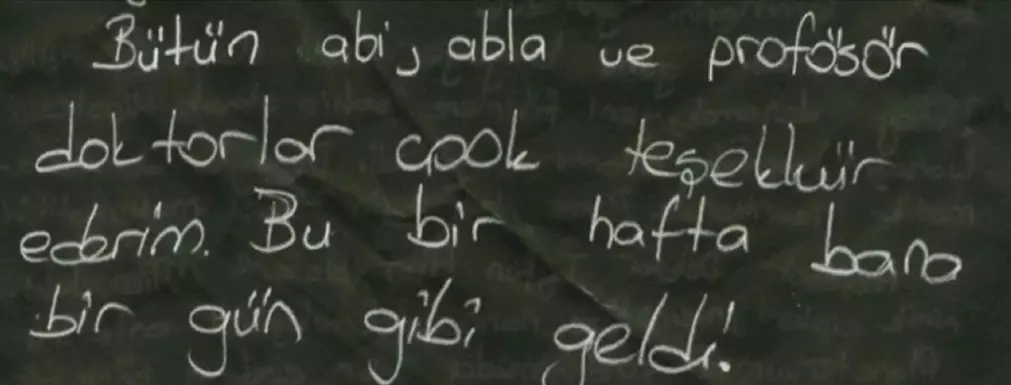 Bütün abi, abla ve profösör
doktorlar çook teşekkür
ederim. Bu bir hafta bana
bir gün gibi geldi.